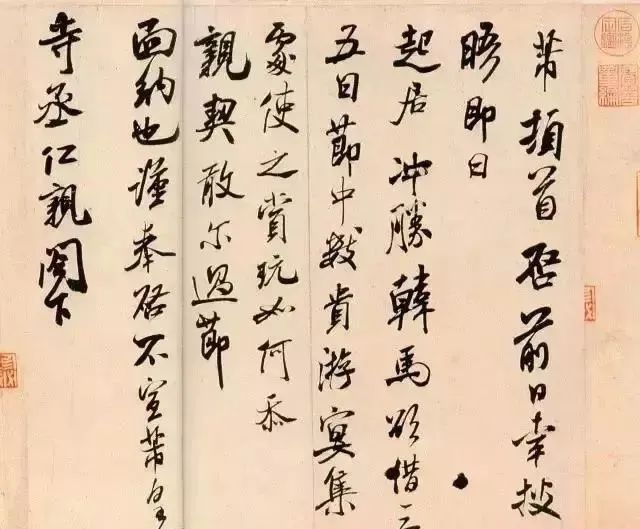 芾頓首啓前日幸披
晤即日
起居冲勝韓馬欲借三
五日節中數貴游宴集
處使之賞玩如何忝
親契敢尔過節
面納也謹奉啓不宣芾皇
寺丞仁親閣下